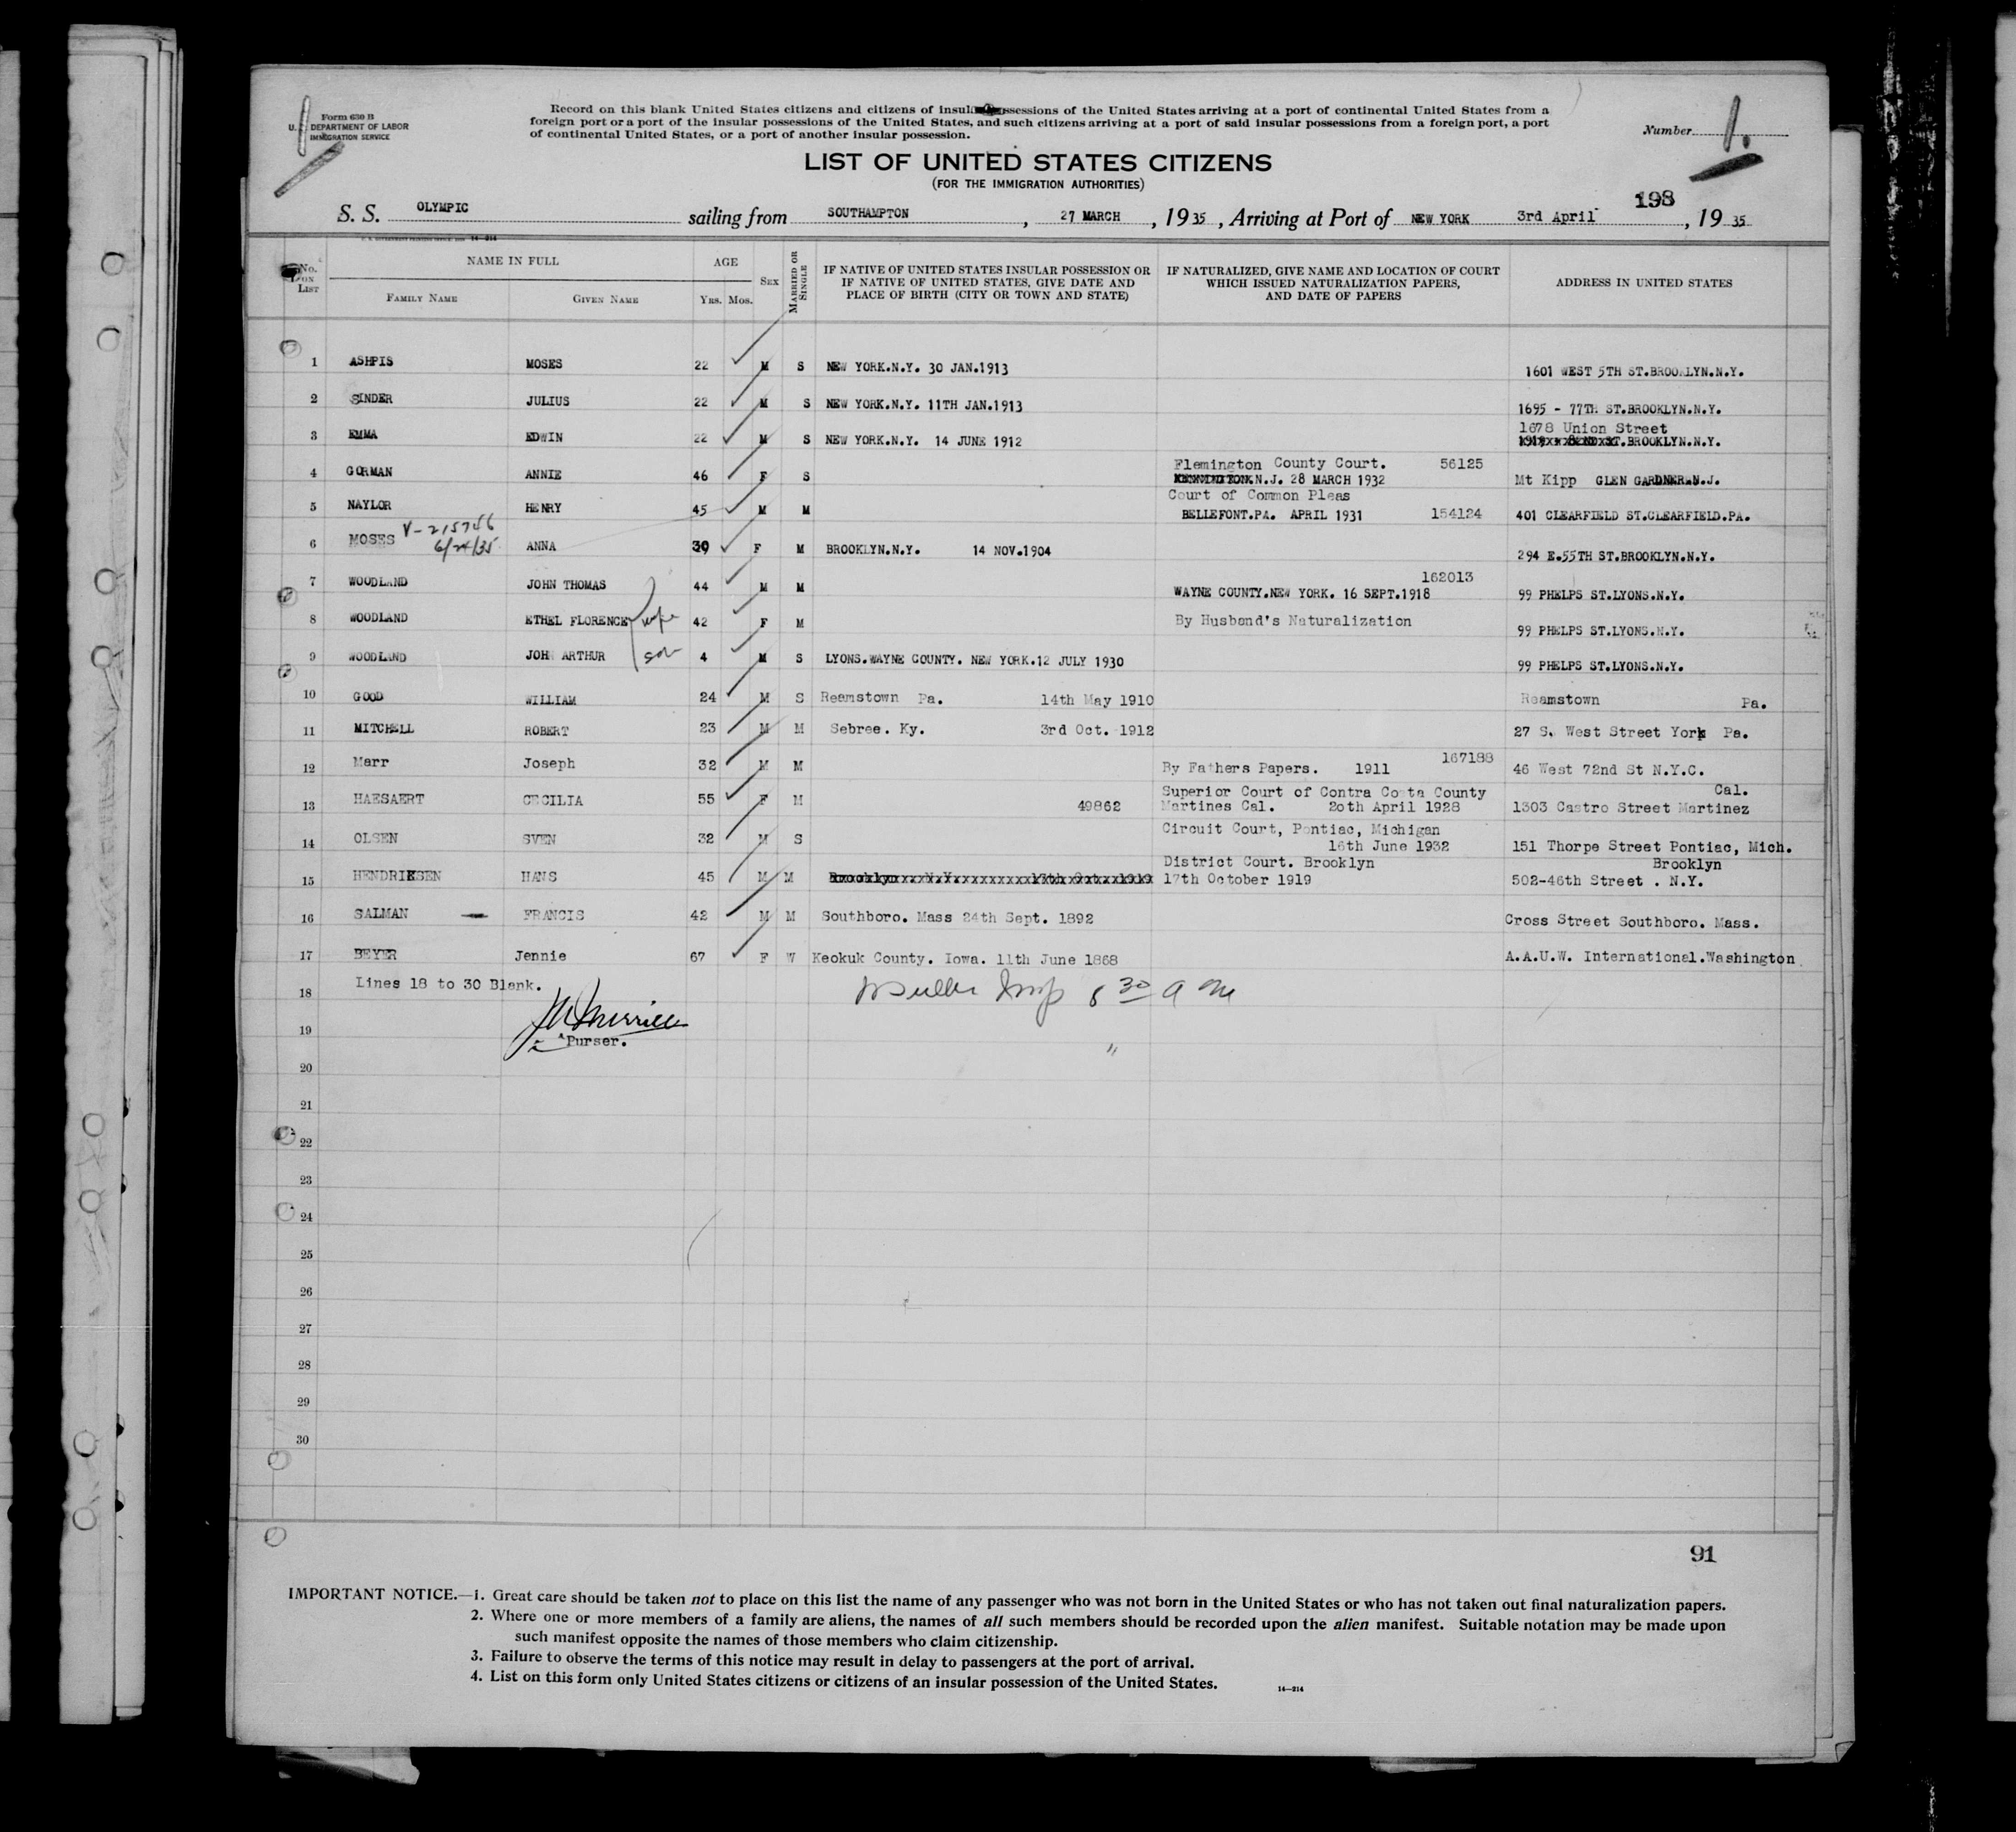 Form 630 B
U. S. DEPARTMENT OF LABOR
IMMIGRATION SERVICE
Record on this blank United States citizens and citizens of insular possessions of the United States arriving at a port of continental United States from a
foreign port or a port of the insular possessions of the United States, and such citizens arriving at a port of said insular possessions from a foreign port, a port
of continental United States, or a port of another insular possession.
Number 1.
LIST OF UNITED STATES CITIZENS
(FOR THE IMMIGRATION AUTHORITIES)
198
S. S. OLYMPIC sailing from SOUTHAMPTON, 27 MARCH, 1935, Arriving at Port of NEW YORK 3rd April, 1935
14—214
No. ON LIST NAME IN FULL AGE SEX MARRIED OR SINGLE IF NATIVE OF UNITED STATES INSULAR POSSESSION OR IF NATIVE OF UNITED STATES, GIVE DATE AND PLACE OF BIRTH (CITY OR TOWN AND STATE) IF NATURALIZED, GIVE NAME AND LOCATION OF COURT WHICH ISSUED NATURALIZATION PAPERS, AND DATE OF PAPERS ADDRESS IN UNITED STATES
FAMILY NAME GIVEN NAME YRS. MOS.
1 ASHPIS MOSES 22 M S NEW YORK.N.Y. 30 JAN.1913 1601 WEST 5TH ST.BROOKLYN.N.Y.
2 SINDER JULIUS 22 M S NEW YORK.N.Y. 11TH JAN.1913 1695 - 77TH ST.BROOKLYN.N.Y.
1678 Union Street
3 EMMA EDWIN 22 M S NEW YORK.N.Y. 14 JUNE 1912 ST.BROOKLYN.N.Y.
Flemington County Court. 56125
4 GORMAN ANNIE 46 F S N.J. 28 MARCH 1932 Mt Kipp GLEN GARDNER.N.J.
Court of Common Pleas
5 NAYLOR HENRY 45 M M BELLEFONT.PA. APRIL 1931 154124 401 CLEARFIELD ST.CLEARFIELD.PA.
V-215756
6/24/35
6 MOSES ANNA 30 F M BROOKLYN.N.Y. 14 NOV.1904 294 E.55TH ST.BROOKLYN.N.Y.
162013
7 WOODLAND JOHN THOMAS 44 M M WAYNE COUNTY.NEW YORK. 16 SEPT.1918 99 PHELPS ST.LYONS.N.Y.
8 WOODLAND ETHEL FLORENCE wife 42 F M By Husband's Naturalization 99 PHELPS ST.LYONS.N.Y.
9 WOODLAND JOHN ARTHUR son 4 M S LYONS.WAYNE COUNTY. NEW YORK.12 JULY 1930 99 PHELPS ST.LYONS.N.Y.
10 GOOD WILLIAM 24 M S Reamstown Pa. 14th May 1910 Reamstown Pa.
11 MITCHELL ROBERT 23 M M Sebree. Ky. 3rd Oct. 1912 27 S. West Street York Pa.
167188
12 Marr Joseph 32 M M By Fathers Papers. 1911 46 West 72nd St N.Y.C.
Superior Court of Contra Costa County Cal.
13 HAESAERT CECILIA 55 F M 49862 Martines Cal. 20th April 1928 1303 Castro Street Martinez
Circuit Court, Pontiac, Michigan
14 OLSEN SVEN 32 M S 16th June 1932 151 Thorpe Street Pontiac, Mich.
District Court. Brooklyn Brooklyn
15 HENDRIKSEN HANS 45 M M 17th October 1919 502-46th Street . N.Y.
16 SALMAN FRANCIS 42 M M Southboro. Mass 24th Sept. 1892 Cross Street Southboro. Mass.
17 BEYER Jennie 67 F W Keokuk County. Iowa. 11th June 1868 A.A.U.W. International.Washington.
Lines 18 to 30 Blank.
18 Insp 8 30 a m
19
Purser.
20
21
22
23
24
25
26
27
28
29
30
91
IMPORTANT NOTICE.—1. Great care should be taken not to place on this list the name of any passenger who was not born in the United States or who has not taken out final naturalization papers.
2. Where one or more members of a family are aliens, the names of all such members should be recorded upon the alien manifest. Suitable notation may be made upon
such manifest opposite the names of those members who claim citizenship.
3. Failure to observe the terms of this notice may result in delay to passengers at the port of arrival.
4. List on this form only United States citizens or citizens of an insular possession of the United States.
14—214